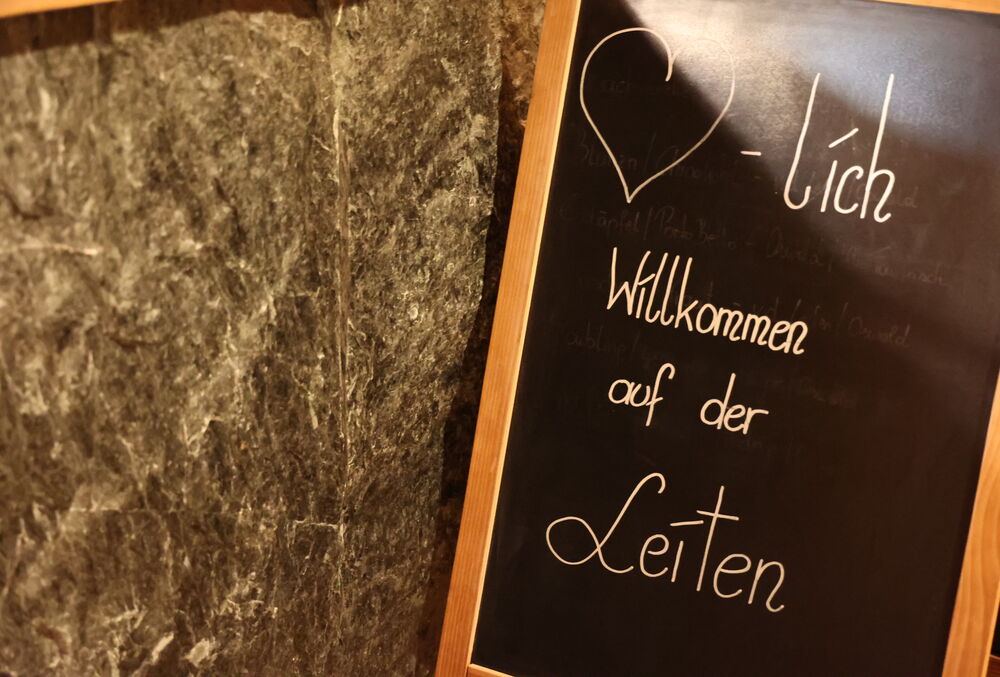 ♡-lich
Willkommen
auf der
Leiten